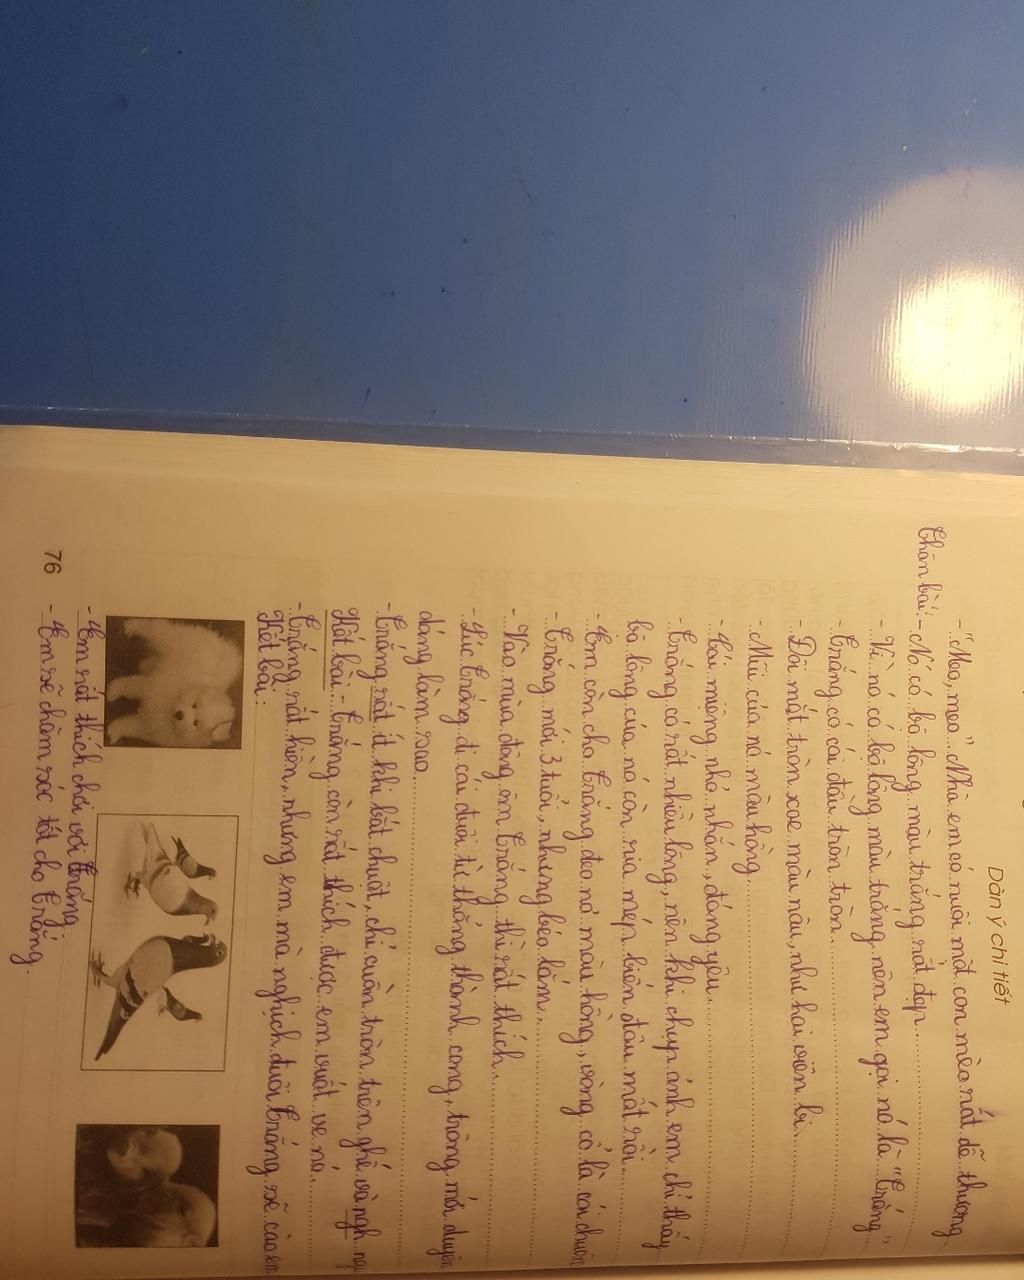 Dàn ý chi tiết
- "Meo, meo" Nhà em có nuôi một con mèo rất dễ thương
Thân bài: - Nó có bộ lông màu trắng rất đẹp
- Vì nó có bộ lông màu trắng nên em gọi nó là "Trắng"
- Trắng có cái đầu tròn tròn.
- Đôi mắt tròn xoe màu nâu, như hai viên bi.
- Mũi của nó màu hồng.
- Cái miệng nhỏ nhắn, đáng yêu.
- Trắng có rất nhiều lông, nên khi chụp ảnh em chỉ thấy
bộ lông của nó còn ria mép biến đâu mất rồi.
- Em còn cho Trắng đeo nơ màu hồng, vòng cổ là cái chuông
- Trắng mới 3 tuổi, nhưng béo lắm.
- Vào mùa đông ôm Trắng thì rất thích.
- Lúc Trắng đi cái đuôi từ thẳng thành cong, trông mới duyên
dáng làm sao
- Trắng rất ít khi bắt chuột, chỉ cuộn tròn trên ghế và ngh
Kết bài - Trắng còn rất thích được em vuốt ve nó.
- Trắng rất hiền, nhưng em mà nghịch đuôi Trắng sẽ cào em
Kết bài:
- Em rất thích chơi với Trắng.
76 - Em sẽ chăm sóc tốt cho Trắng.